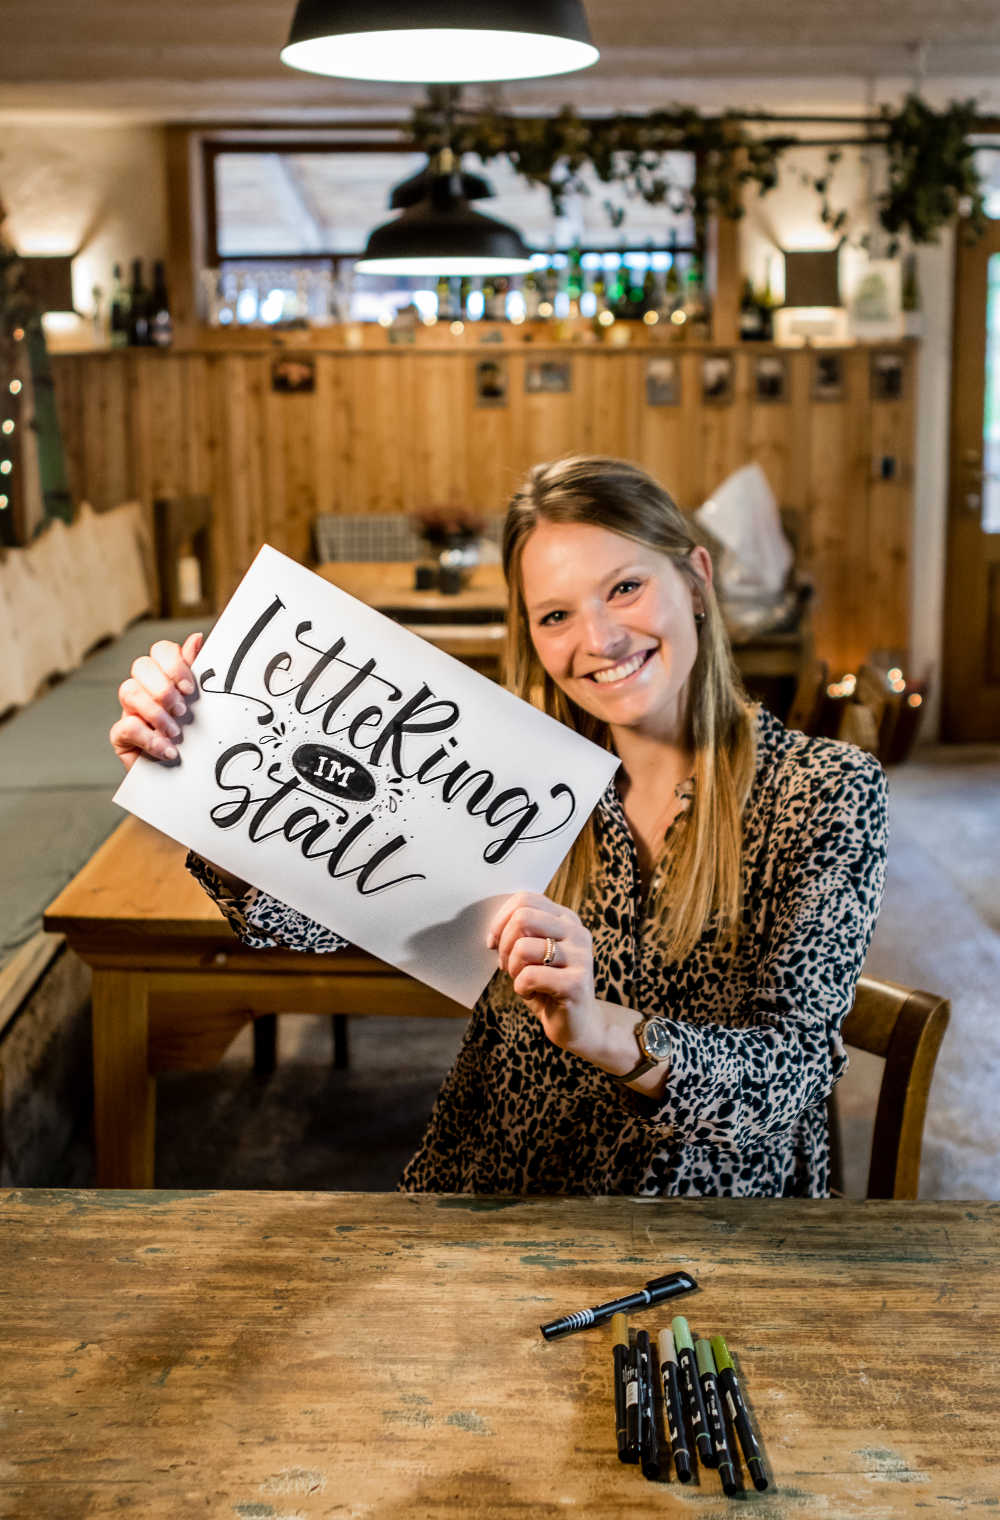 LetteRing
IM
Stall